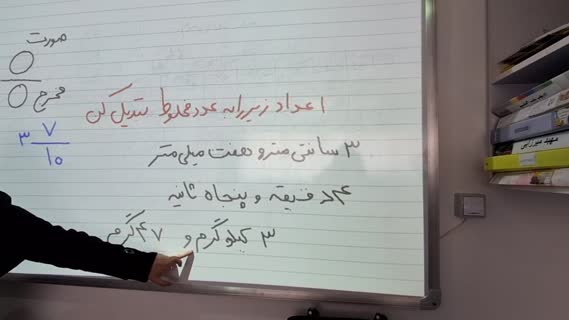 صورت
مخرج
۳ ۷/۱۰
اعداد زیر را به عدد مخلوط تبدیل کن
۳ سانتی مترو هفت میلی متر
۲۴ دقیقه و پنجاه ثانیه
۳ کیلوگرم و ۴۷ گرم